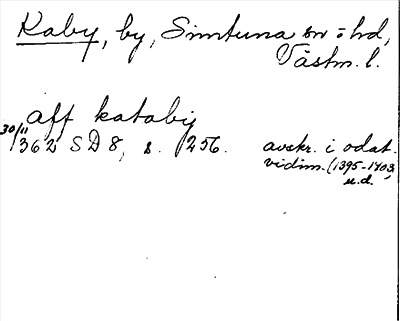 Kaby, by, Simtuna sn o hd,
Västm. l.
aff kataby
30/11 1362 SD 8, s. 256.
avskr. i odat.
vidim. (1395-1403)
u.d.